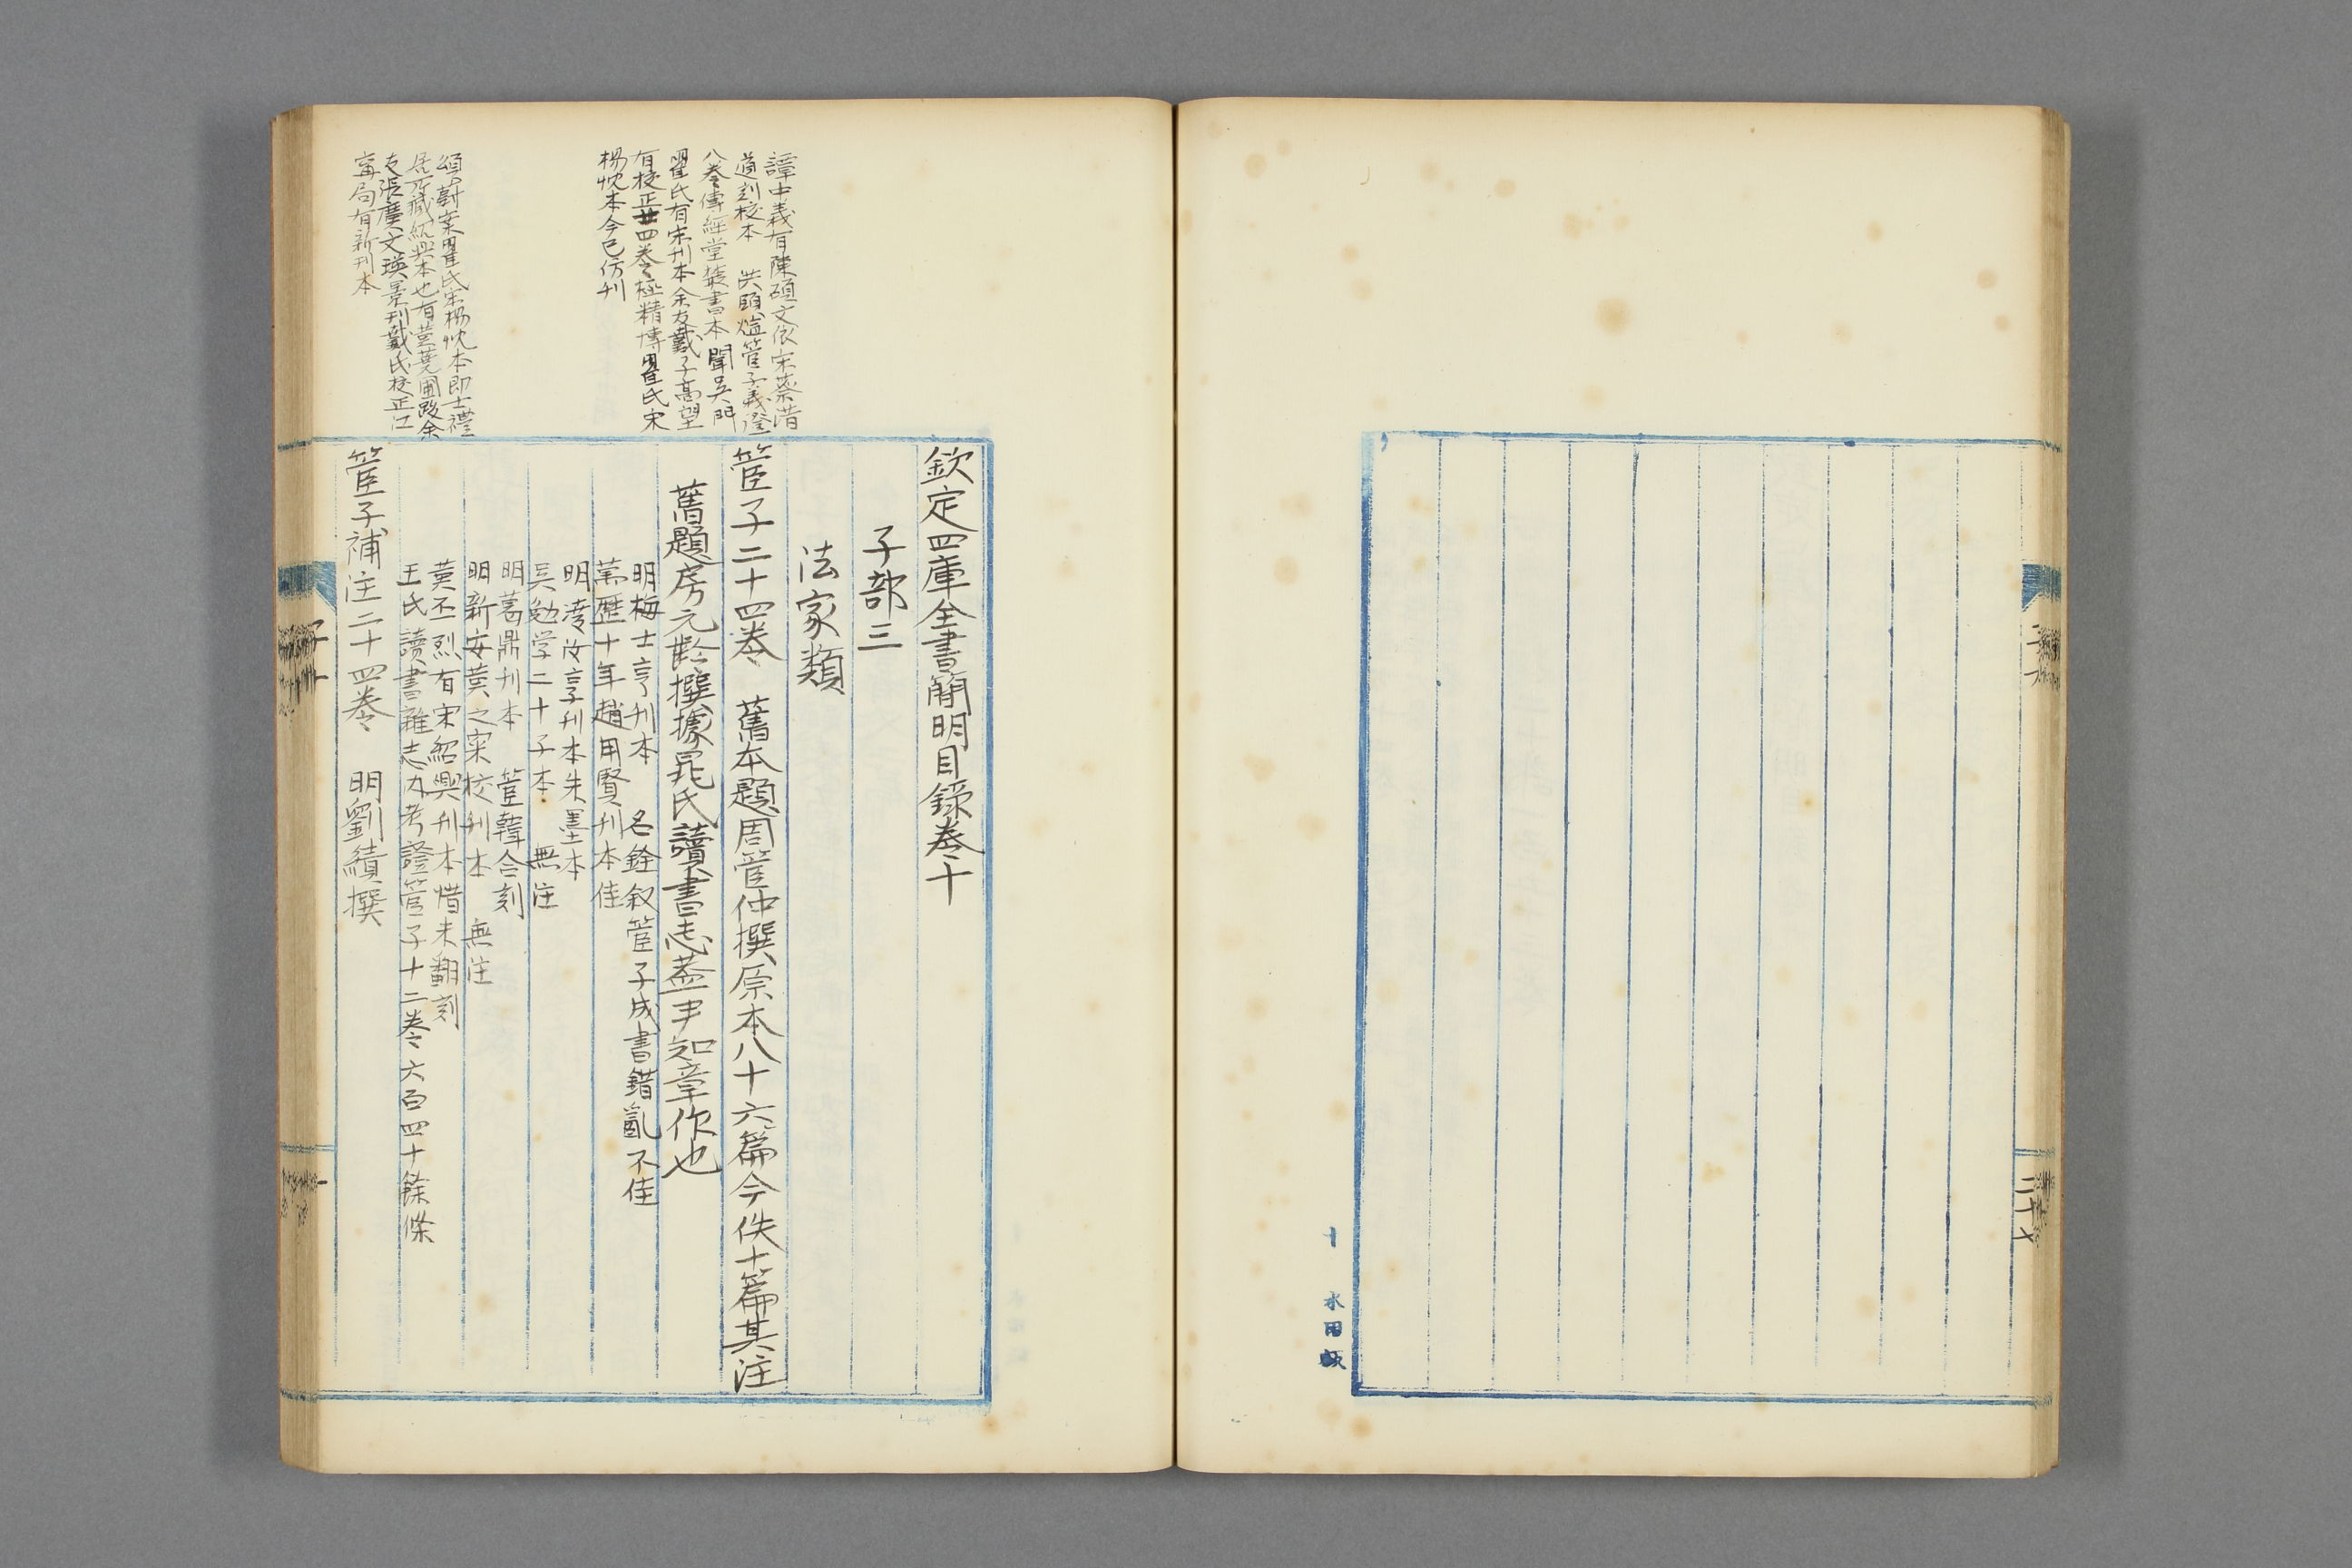 譚中義有陳碩文依宋蔡潛
道刻校本　洪頤煊管子義證
八卷傳經堂叢書本　聞吳門
瞿氏有宋刊本余友戴子高望
有校正廿四卷極精博瞿氏宋
楊忱本今已仿刊
頌蔚案瞿氏宋楊忱本即士禮
居所藏紹興本也有黃蕘圃跋余
友張廣文瑛景刊戴氏校正江
甯局有新刊本
欽定四庫全書簡明目錄卷十
子部三
法家類
管子二十四卷　舊本題周管仲撰原本八十六篇今佚十篇其注
舊題房元齡撰據晁氏讀書志蓋尹知章作也
明梅士亨刊本　名銓叙管子成書錯亂不佳
萬歷十年趙用賢刊本佳
明凌汝亨刊本朱墨本
吳勉学二十子本　無注
明葛鼎刊本　管韓合刻
明新安黃之寀校刊本　無注
黃丕烈有宋紹興刊本惜未翻刻
王氏讀書雜志內考證管子十二卷六百四十餘條
管子補注二十四卷　明劉績撰
子十
一
二十七
十